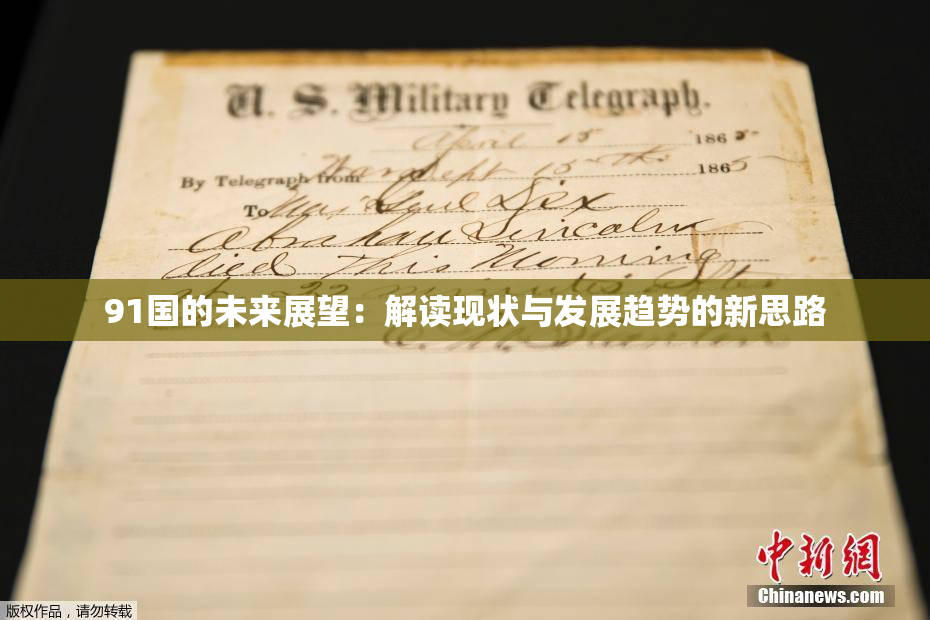 U. S. Military Telegraph.
April 15 1865
By Telegraph from War Dept 15th 1865
To Maj Genl Dix
Abraham Lincoln
died This Morning
at 22 minutes after
91国的未来展望：解读现状与发展趋势的新思路
E. M. Stanton
中新網
Chinanews.com
版权作品，请勿转载